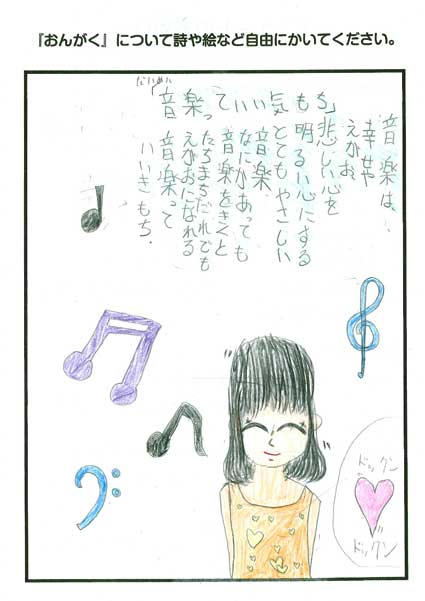 『おんがく』について詩や絵など自由にかいてください。
だいめい
「音楽っていい気もち」
音楽は、
幸せや
えがお、
悲しい心を
明るい心にする
とてもやさしい
音楽
なにがあっても
音楽をきくと
たちまちだれでも
えがおになれる
音楽って
いいきもち.
ドックン
ドックン